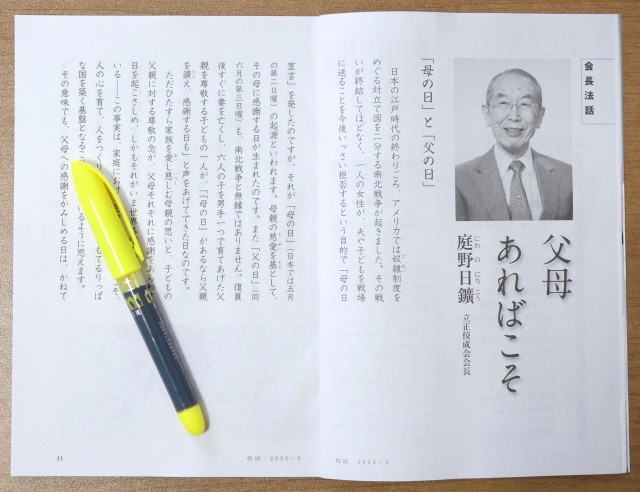 会長法話
父母
あればこそ
庭野日鑛
にわ の にち こう
立正佼成会会長
「母の日」と「父の日」
日本の江戸時代の終わりごろ、アメリカでは奴隷制度を
めぐる対立で国を二分する南北戦争が起きました。その戦
いが終結してほどなく、一人の女性が、夫や子どもを戦場
に送ることを今後いっさい拒否するという目的で「母の日
佼成 2025・5
宣言」を発したのですが、それが「母の日」(日本では五月
の第二日曜)の起源といわれます。母親の慈愛を基として、
その母に感謝する日が生まれたのです。また「父の日」(同
六月の第三日曜)も、南北戦争と無縁ではありません。復員
後すぐに妻を亡くし、六人の子を男手一つで育てあげた父
親を尊敬する子どもの一人が、「「母の日」があるなら父親
を讃え、感謝する日も」と声をあげてできた日なのです。
ただひたすら家族を愛し慈しむ母親の思いと、子どもの
父親に対する尊敬の念が、父母それぞれに感謝を
日を起こさしめ、しかもそれがいま世界
いる――この事実は、家庭に こそ、
人の心を育て、人をつくり もてるりっぱ
な国を築く基盤となること いるように思えます。
その意味でも、父母への感謝をかみしめる日は、かねて
11
佼成 2025・5